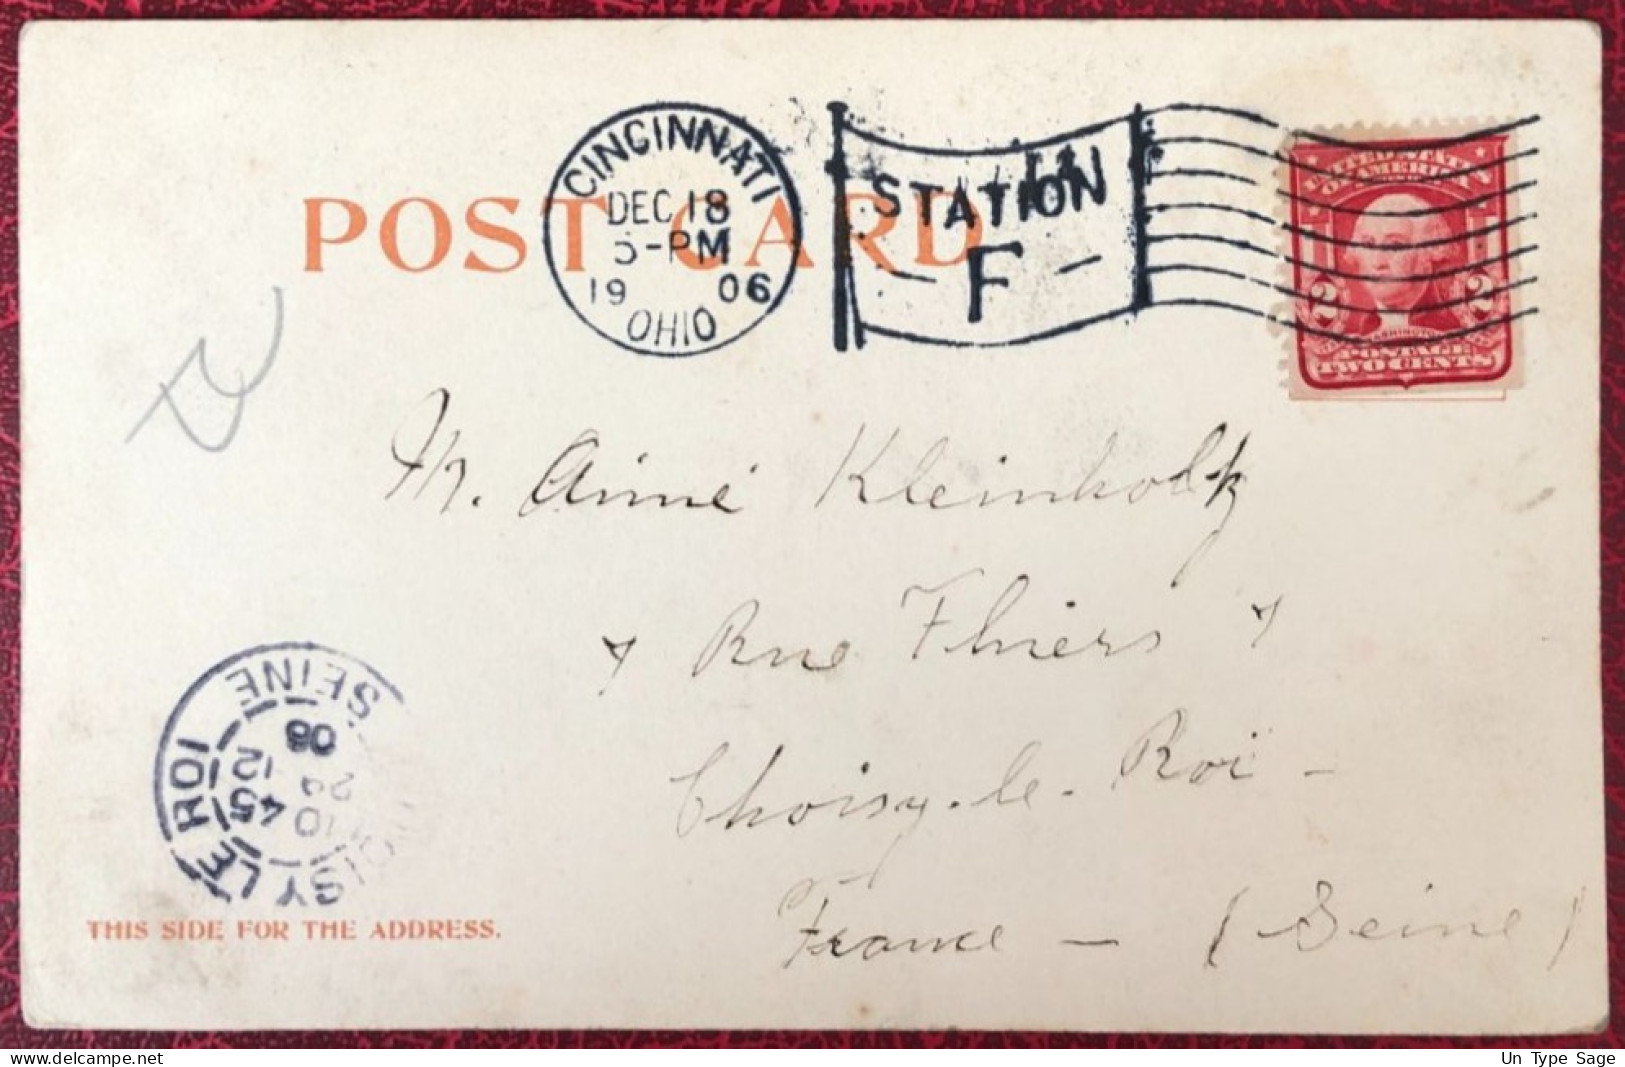 POST CARD
CINCINNATI
DEC 18
5-PM
1906
OHIO
STATION
- F -
UNITED STATES
OF AMERICA
2 2
WASHINGTON
POSTAGE
TWO CENTS
M. Aimé Kleinholtz
Rue Thiers
Choisy-le-Roi -
France - (Seine)
SY LE ROI
SEINE
10 45
12
06
THIS SIDE FOR THE ADDRESS.
Un Type Sage